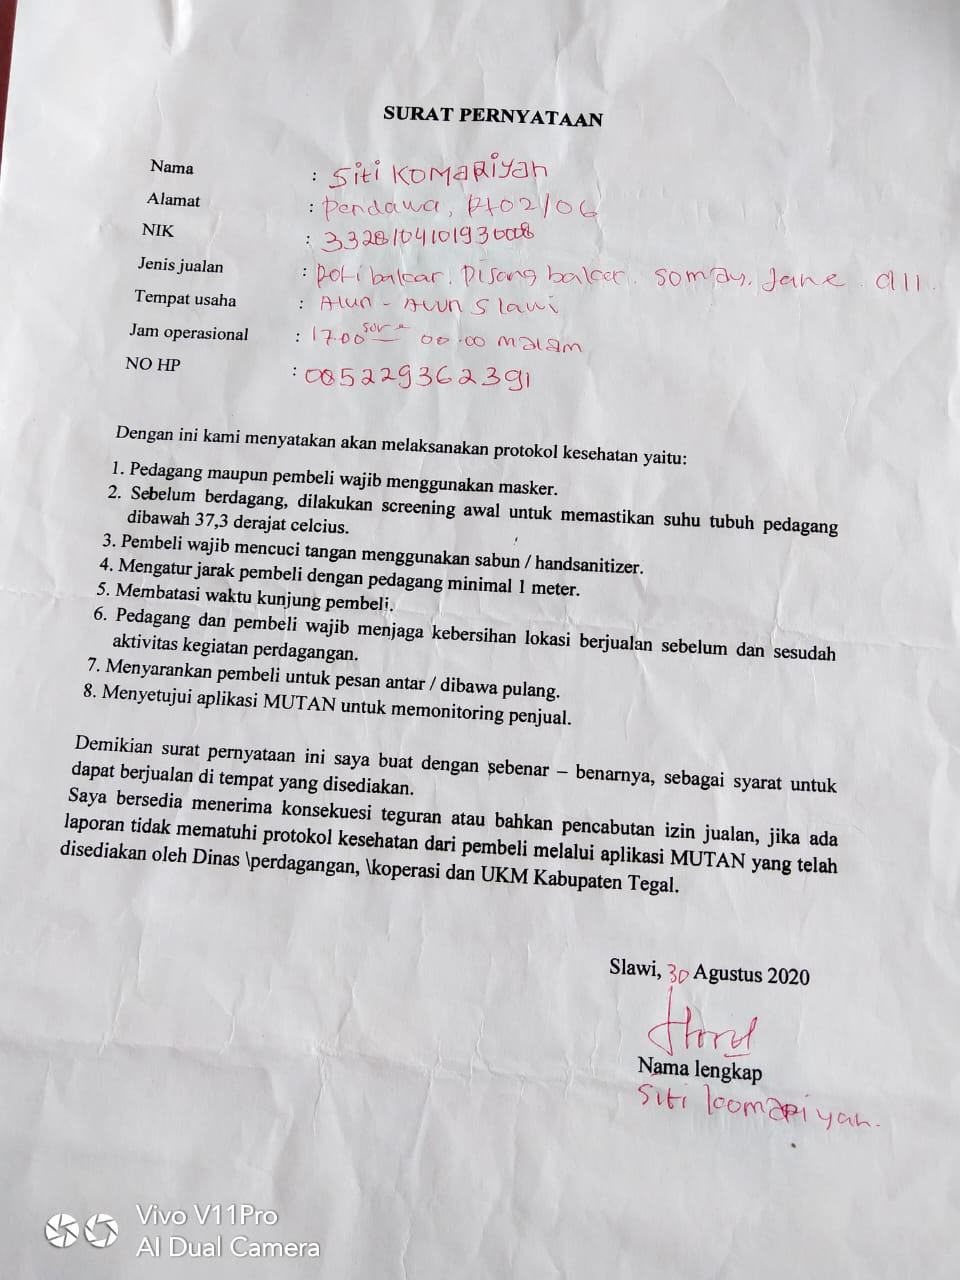 SURAT PERNYATAAN
Nama : Siti KOMARiyah
Alamat : Pendawa, Rt02/06
NIK : 3328104101930008
Jenis jualan : Roti bakar. Pisang bakar. somay. Jane. dll.
Tempat usaha : Alun - Alun Slawi
Jam operasional : 17.00 sore 00.00 malam
NO HP : 085229362391
Dengan ini kami menyatakan akan melaksanakan protokol kesehatan yaitu:
1. Pedagang maupun pembeli wajib menggunakan masker.
2. Sebelum berdagang, dilakukan screening awal untuk memastikan suhu tubuh pedagang
dibawah 37,3 derajat celcius.
3. Pembeli wajib mencuci tangan menggunakan sabun / handsanitizer.
4. Mengatur jarak pembeli dengan pedagang minimal 1 meter.
5. Membatasi waktu kunjung pembeli.
6. Pedagang dan pembeli wajib menjaga kebersihan lokasi berjualan sebelum dan sesudah
aktivitas kegiatan perdagangan.
7. Menyarankan pembeli untuk pesan antar / dibawa pulang.
8. Menyetujui aplikasi MUTAN untuk memonitoring penjual.
Demikian surat pernyataan ini saya buat dengan sebenar – benarnya, sebagai syarat untuk
dapat berjualan di tempat yang disediakan.
Saya bersedia menerima konsekuesi teguran atau bahkan pencabutan izin jualan, jika ada
laporan tidak mematuhi protokol kesehatan dari pembeli melalui aplikasi MUTAN yang telah
disediakan oleh Dinas \perdagangan, \koperasi dan UKM Kabupaten Tegal.
Slawi, 30 Agustus 2020
Nama lengkap
Siti komariyah.
Vivo V11Pro
AI Dual Camera